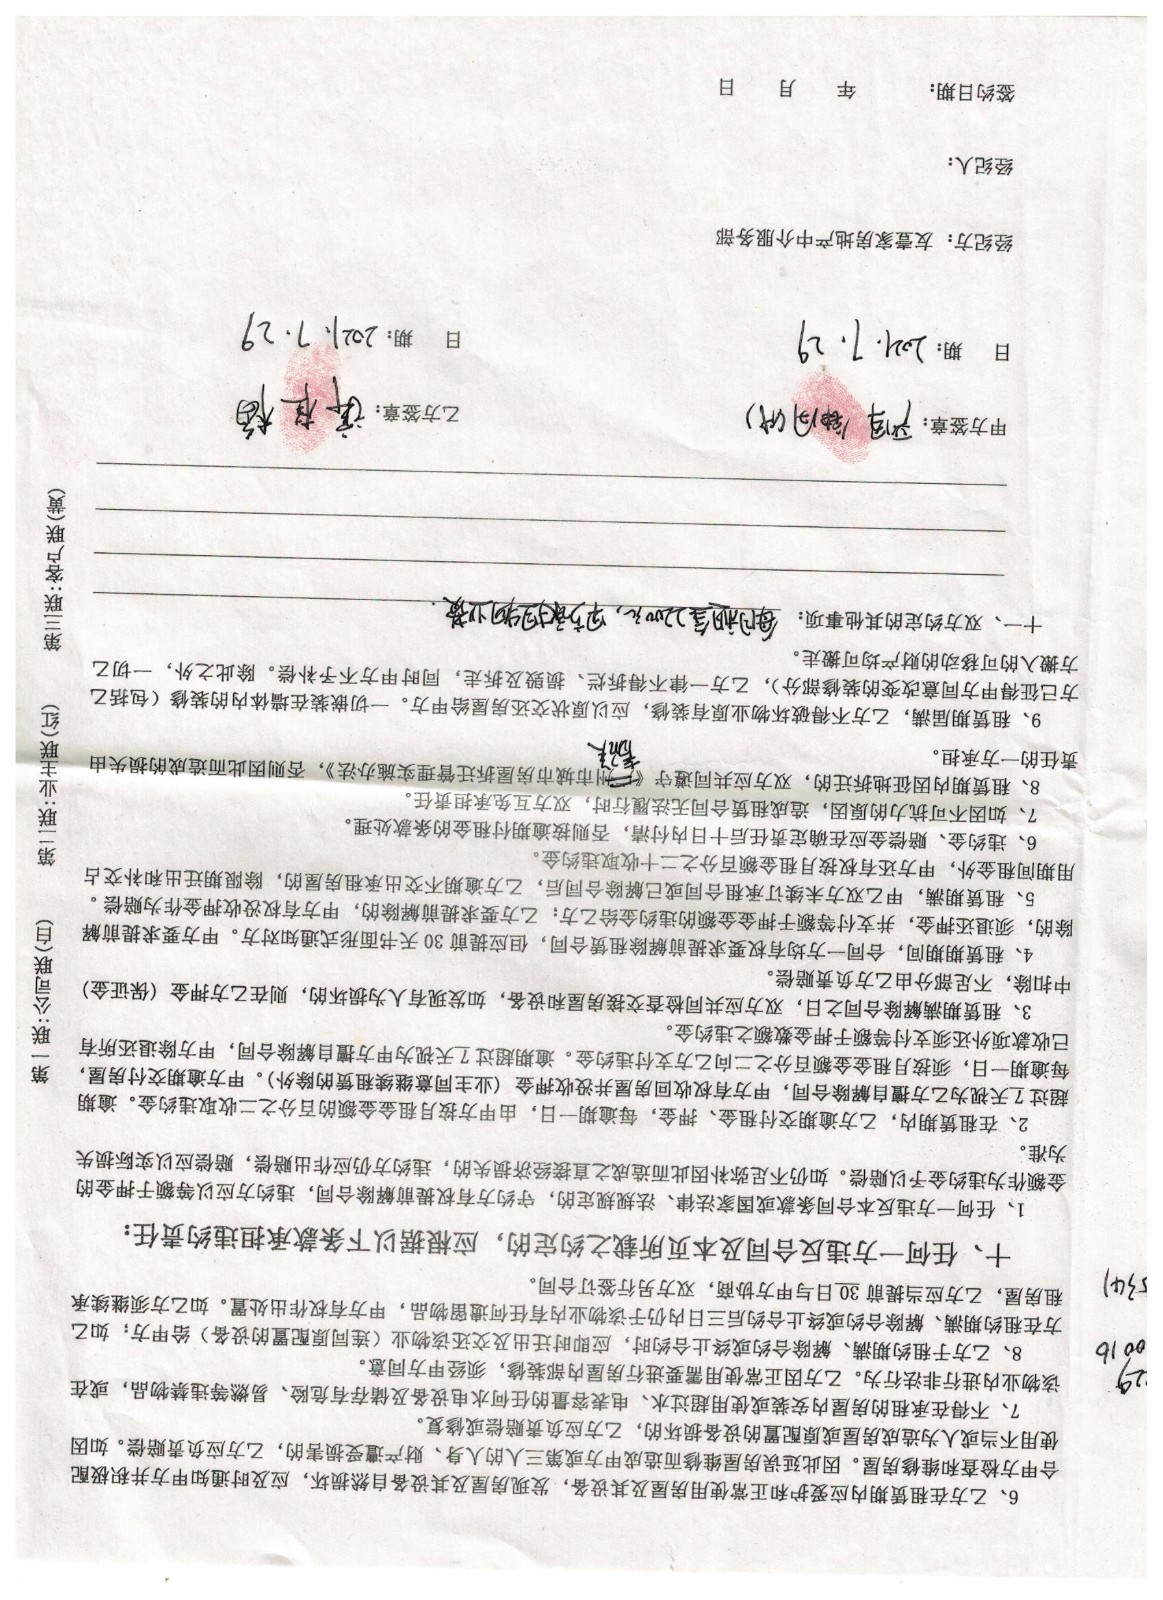 6、乙方在租赁期内应爱护和正常使用房屋及其设备，发现房屋及其设备自然损坏，应及时通知甲方并积极配
合甲方检查和维修房屋。因此延误房屋维修而造成甲方或第三人的人身、财产遭受损害的，乙方应负责赔偿。如因
使用不当或人为造成房屋或原配置的设备损坏的，乙方应负责赔偿或修复。
7、不得在承租的房屋内安装或使用超过水、电表容量的任何水电设备及储存有危险、易燃等违禁物品，或在
该物业内进行非法行为。乙方因正常使用需要进行房屋内部装修，须经甲方同意。
8、乙方于租约期满、解除合约或终止合约时，应即时迁出及交还该物业（连同原配置的设备）给甲方；如乙
方在租约期满、解除合约或终止合约后三日内仍于该物业内有任何遗留物品，甲方有权作出处置。如乙方须继续承
租房屋，乙方应当提前30日与甲方协商，双方另行签订合同。
十、任何一方违反合同及本页所载之约定的，应根据以下条款承担违约责任：
1、任何一方违反本合同条款或国家法律、法规规定的，守约方有权提前解除合同，违约方应以等额于押金的
金额作为违约金予以赔偿。如仍不足弥补因此而造成之直接经济损失的，违约方仍应作出赔偿，赔偿应以实际损失
为准。
2、在租赁期内，乙方逾期交付租金、押金，每逾期一日，由甲方按月租金金额的百分之二收取违约金。逾期
超过7天视为乙方擅自解除合同，甲方有权收回房屋并没收押金（业主同意继续租赁的除外）。甲方逾期交付房屋，
每逾期一日，须按月租金金额百分之二向乙方支付违约金。逾期超过7天视为甲方擅自解除合同，甲方除退还所有
已收款项外还须支付等额于押金数额之违约金。
3、租赁期满解除合同之日，双方应共同检查交接房屋和设备，如发现有人为损坏的，则在乙方押金（保证金）
中扣除，不足部分由乙方负责赔偿。
4、租赁期期间，合同一方均有权要求提前解除租赁合同，但应提前30天书面形式通知对方。甲方要求提前解
除的，须退还押金，并支付等额于押金金额的违约金给乙方；乙方要求提前解除的，甲方有权没收押金作为赔偿。
5、租赁期满，甲乙双方未续订承租合同或已解除合同后，乙方逾期不交出承租房屋的，除限期迁出和补交占
用期间租金外，甲方还有权按月租金额百分之二十收取违约金。
6、违约金、赔偿金应在确定责任后十日内付清，否则按逾期付租金的条款处理。
7、如因不可抗力的原因，造成租赁合同无法履行时，双方互免承担责任。
8、租赁期内因征地拆迁的，双方应共同遵守《广州市城市房屋拆迁管理实施办法》，否则因此而造成的损失由
责任的一方承担。
9、租赁期届满，乙方不得破坏物业原有装修，应以原状交还房屋给甲方。一切嵌装在墙体内的装修（包括乙
方已征得甲方同意改变的装修部分），乙方一律不得拆烂、损毁及拆走，同时甲方不予补偿。除此之外，一切乙
方搬入的可移动的财产均可搬走。
十一、双方约定的其他事项：每月租金2200元，
甲方签章：
乙方签章：
日　期：2021.7.29
日　期：2021.7.29
经纪方：友壹家房地产中介服务部
经纪人：
签约日期：　年　月　日
第一联：公司联（白）　第二联：业主联（红）　第三联：客户联（黄）